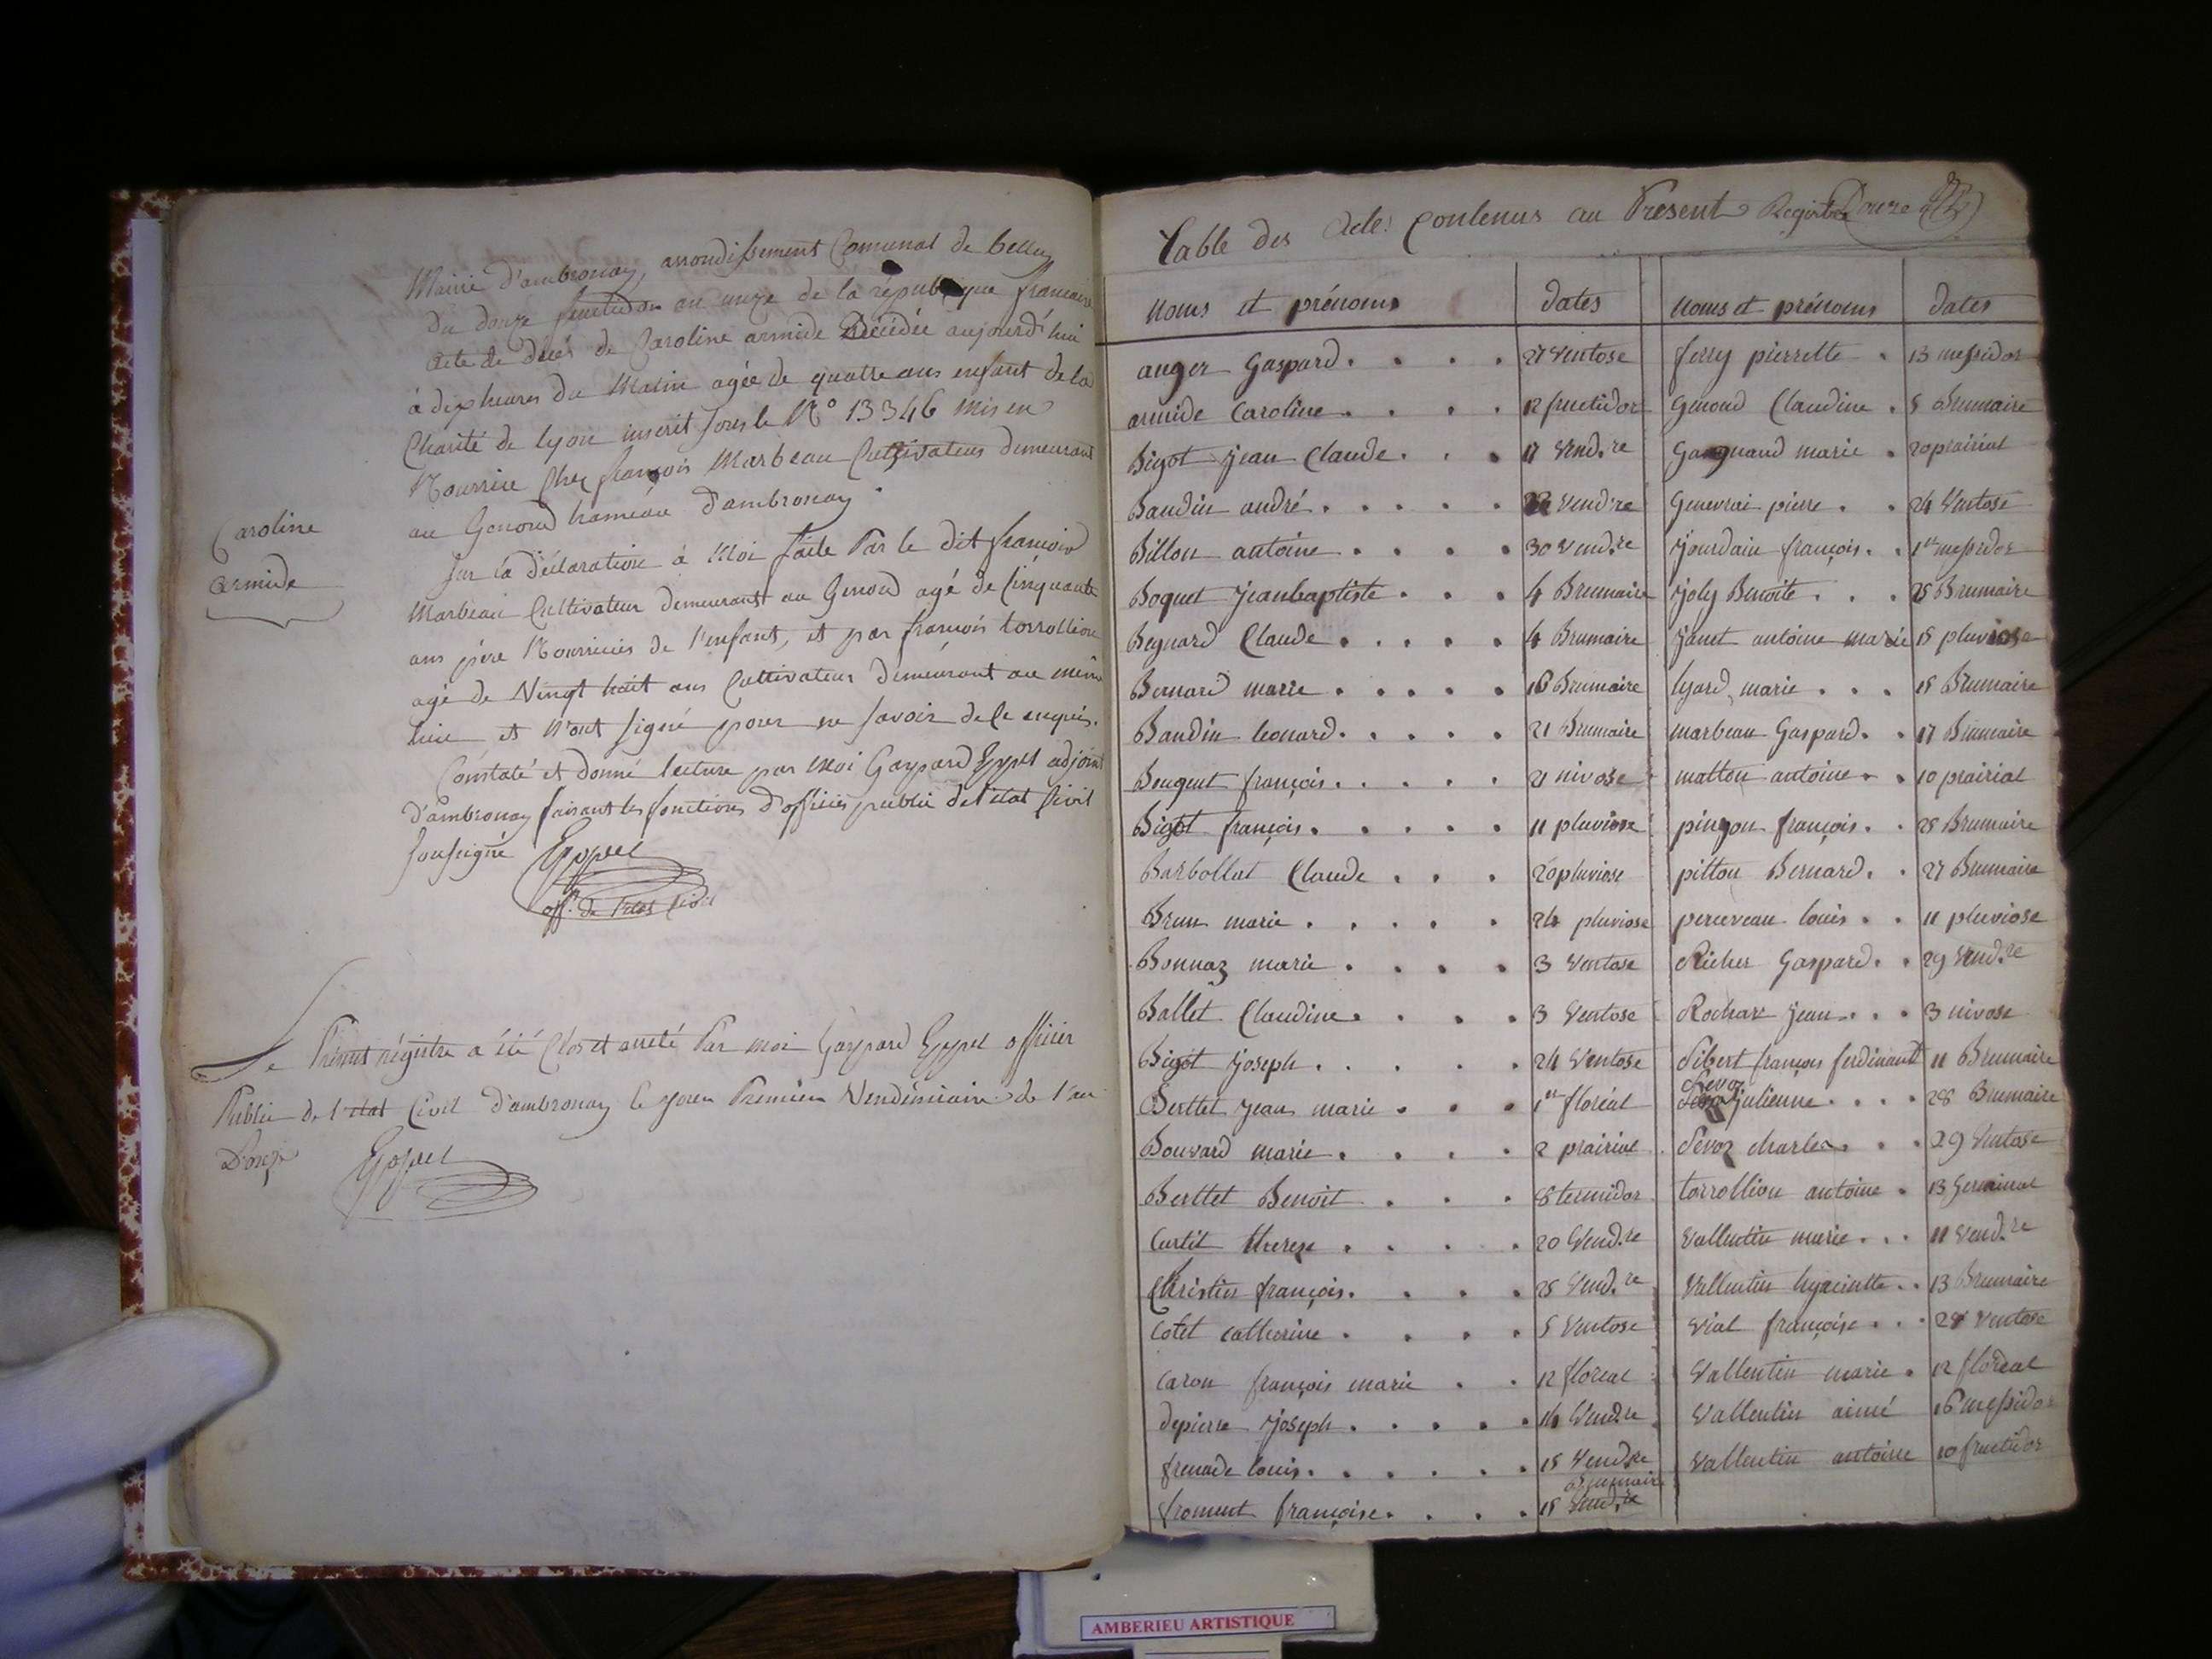 Mairie d'ambronay, arrondissement Comunal de belley
Du douze fructidor an onze de la république francaise
acte de décès de Caroline armide Décédée aujourd'hui
à dix heures du Matin agée de quatre ans enfant de la
Charité de lyon inscrit sous le N° 13346 mis en
Nourrice Chez françois Marbeau Cultivateur demeurant
au Genoud hameau d'ambronay
Caroline
armide
sur la déclaration à Moi faite Par le dit françois
Marbeau Cultivateur demeurant au Genoud agé de Cinquante
ans père Nourricier de l'enfant, et par françois torrollion
agé de Vingt huit ans Cultivateur demeurant au même
lieu et N'ont signé pour ne savoir de ce enquis.
Constaté et donné lecture par Moi Gaspard Eyppel adjoint
d'ambronay faisant les fonctions d'officier public de l'état Civil
soussigné Eyppel
off. de l'état Civil
Le Présent régistre a été Clos et arreté Par moi Gaspard Eyppel officier
Public de l'état Civil d'ambronay le jour Premier Vendémiaire de l'an
Douze Eyppel
Table des Acte Contenus au Présent Registre Douze
noms et prénoms dates noms et prénoms dates
anger Gaspard . . . . 27 Ventose ferry pierrette . 13 messidor
armide Caroline . . . . 12 fructidor Genoud Claudine . 5 Brumaire
Bigot Jean Claude . . . 11 Vend.re marie . 20 prairial
Baudin andré . . . . . 22 Vend.re Genevrai pierre . . 24 Ventose
Billon antoine . . . . 30 Vend.re Jourdain françois . . 1er messidor
Boquet Jeanbaptiste . . . 4 Brumaire Joly Benoite . . . 25 Brumaire
Beguard Claude . . . . . 4 Brumaire Janet antoine marie 15 pluviose
Bernard marie . . . . . 16 Brumaire lyard marie . . . 15 Brumaire
Baudin leonard . . . . . 21 Brumaire marbeau Gaspard . . 17 Brumaire
Bouguet françois . . . . . 21 nivose matton antoine . . 10 prairial
Bigot françois . . . . . 11 pluviose pinjon françois . . 25 Brumaire
Barbollat Claude . . . 20 pluviose pitton Bernard . . 27 Brumaire
Brun marie . . . . . 24 pluviose perceveau louis . . 11 pluviose
Bonnaz marie . . . . 3 Ventose Richer Gaspard . . 29 Vend.re
Ballet Claudine . . . . 3 Ventose Rochar Jean . . . 3 nivose
Bigot Joseph . . . . . 24 Ventose Sibert françois ferdinand 11 Brumaire
Berttet Jean marie . . . 1er floréal Sevoz julienne . . . . 28 Brumaire
Bouvard marie . . . . 2 prairial Sevoz charles . . . 29 Ventose
Berttet Benoit . . . 8 termidor torrollion antoine . 13 Germinal
Curtit therese . . . . . 20 Vend.re Vallentin marie . . . 11 Vend.re
Christin françois . . . . 25 Vend.re Vallentin hyacinthe . . 13 Brumaire
Cotet catherine . . . . 5 Ventose Vial françoise . . . 28 Ventose
Caron françois marie . . 12 floreal Vallentin marie . 12 floreal
depierre Joseph . . . . . 14 Vend.re Vallentin aimé 16 messidor
frenade louis . . . . . . 15 Vend.re Vallentin antoine 10 fructidor
Brumaire
froment françoise . . . . 15 Vend.re
AMBERIEU ARTISTIQUE